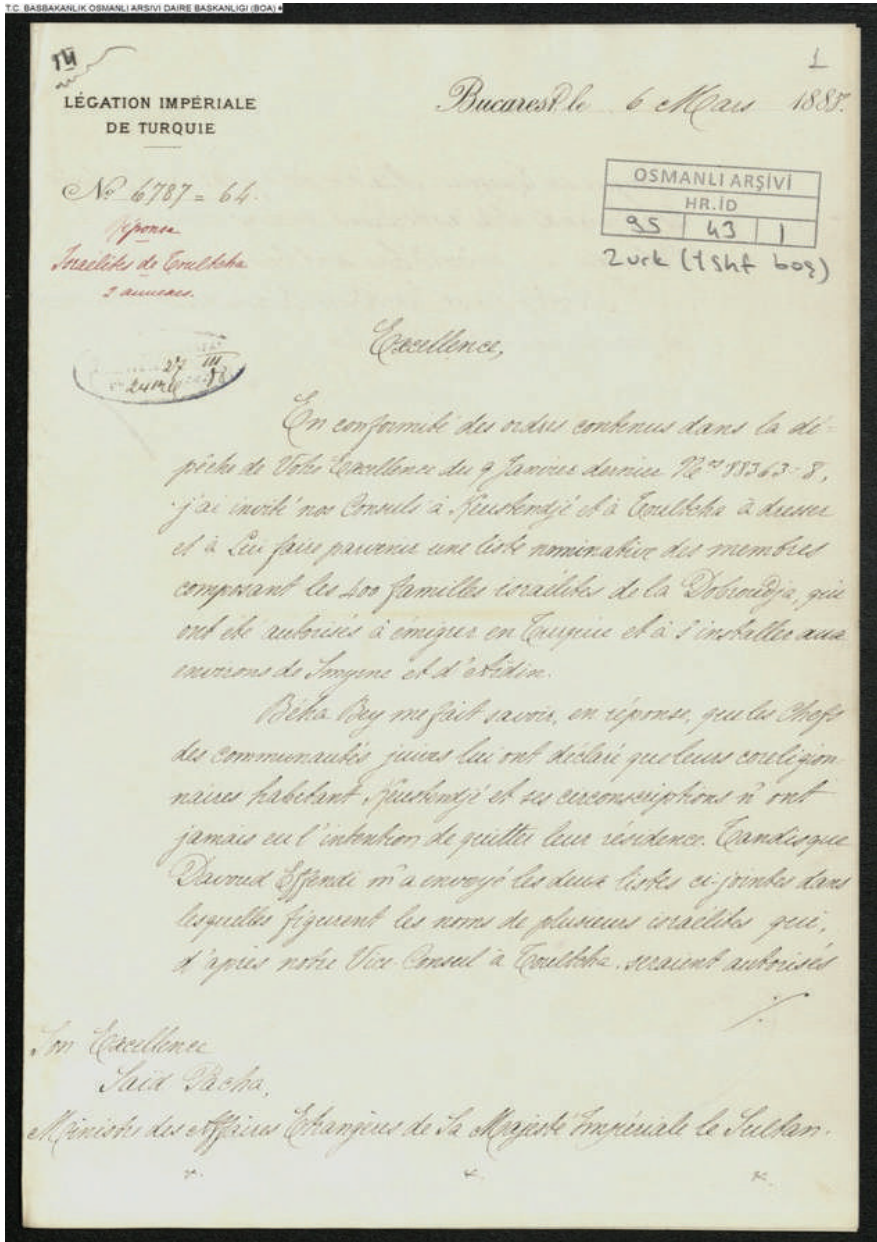 T.C. BASBAKANLIK OSMANLI ARSIVI DAIRE BASKANLIGI (BOA)
1
LÉGATION IMPÉRIALE
DE TURQUIE
Bucarest, le 6 Mars 1885.
Nº 6787 = 64.
réponse
Israélites de Toultcha
2 annexes.
OSMANLI ARŞİVİ
HR.İD
95 43 1
2 vrk (1 shf boş)
27 III
Excellence,
En conformité des ordres contenus dans la dé-
pêche de Votre Excellence du 9 Janvier dernier Nos 88363-8,
j'ai invité nos Consuls à Keustendjé et à Toultcha à dresser
et à Lui faire parvenir une liste nominative des membres
composant les 400 familles israélites de la Dobroudja, qui
ont été autorisés à émigrer en Turquie et à s'installer aux
environs de Smyrne et d'Aïdin.
Béha Bey me fait savoir, en réponse, que les Chefs
des communautés juives lui ont déclaré que leurs coreligion-
naires habitant Keustendjé et ses circonscriptions n'ont
jamais eu l'intention de quitter leur résidence. Tandisque
Davoud Effendi m'a envoyé les deux listes ci-jointes dans
lesquelles figurent les noms de plusieurs israélites qui,
d'après notre Vice-Consul à Toultcha, seraient autorisés
./.
Son Excellence
Saïd Pacha,
Ministre des Affaires Etrangères de Sa Majesté Impériale le Sultan.